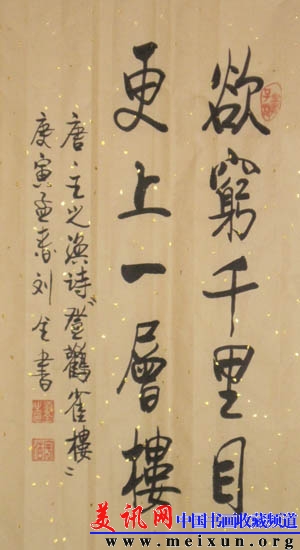 欲窮千里目
更上一層樓
唐王之渙诗登鸛雀樓
庚寅孟春刘 書
美讯网
中国书画收藏频道
www.meixun.org